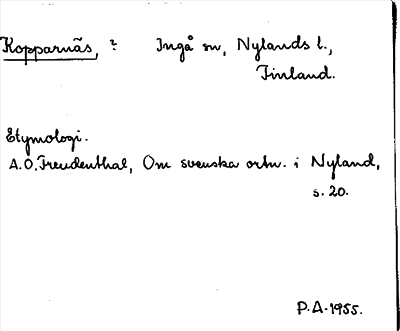 Kopparnäs, ? Ingå sn, Nylands l.,
Finland.
Etymologi.
A.O. Freudenthal, Om svenska ortn. i Nyland,
s. 20.
P.A. 1955.